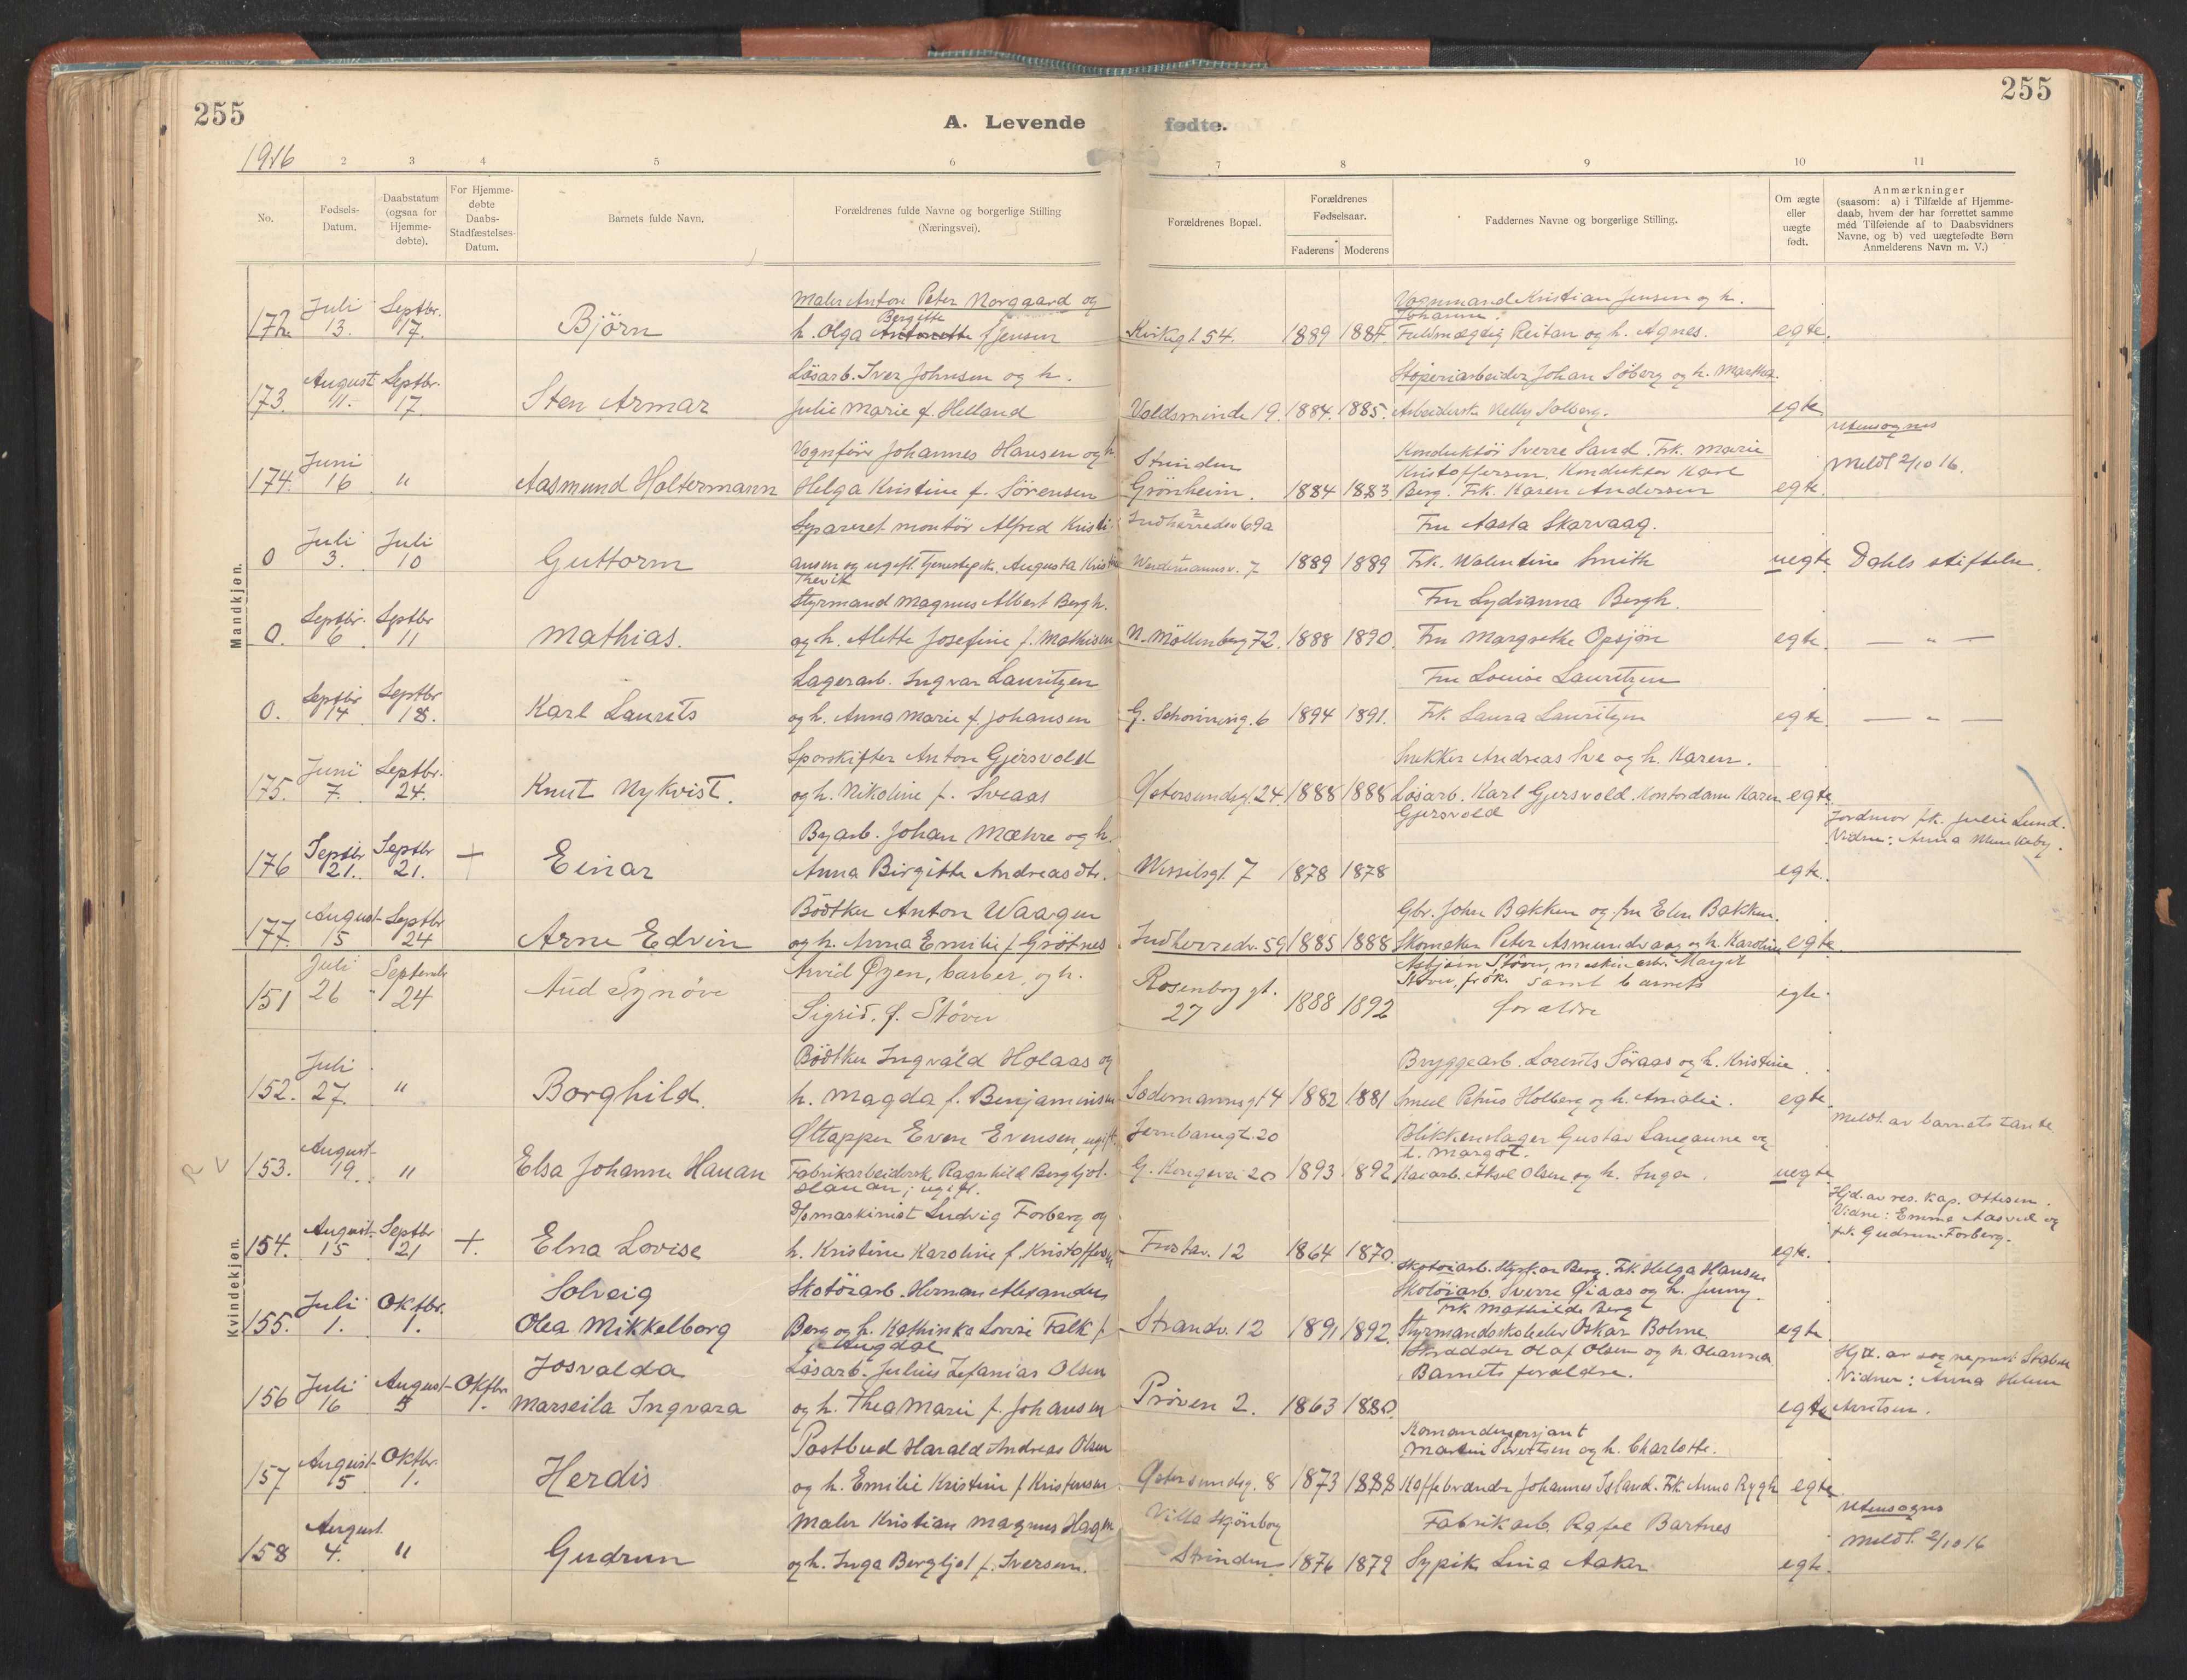 255
255
A. Levende fødte.
1916
2 3 4 5 6 7 8 9 10 11
No.
Fødsels-
Datum.
Daabstatum
(ogsaa for
Hjemme-
døbte).
For Hjemme-
døbte
Daabs-
Stadfæstelses-
Datum.
Barnets fulde Navn.
Forældrenes fulde Navne og borgerlige Stilling
(Næringsvei).
Forældrenes Bopæl.
Forældrenes
Fødselsaar.
Faderens Moderens
Faddernes Navne og borgerlige Stilling.
Om ægte
eller
uægte
født.
Anmærkninger
(saasom: a) i Tilfælde af Hjemme-
daab, hvem der har forrettet samme
med Tilføiende af to Daabsvidners
Navne, og b) ved uægtefødte Børn
Anmelderens Navn m. V.)
Mandkjøn.
172. Juli 13. Septbr. 17. Björn
Maler Anton Peter Norgaard og
h. Olga Bergitte Antonette f. Jensen
Kirkegt 54. 1889 1887.
Vognmand Kristian Jensen og h.
Johanne.
Fuldmægtig Reitan og h. Agnes. egte.
173. August 11. Septbr. 17. Sten Armar
Løsarb. Iver Johnsen og h.
Julie Marie f. Helland
Voldsminde 19. 1884. 1885.
Støperiarbeider Johan Söberg og h. Martha.
Arbeidersk. Nelly Solberg. egte.
174. Juni 16 " Aasmund Holtermann
Vognfører Johannes Hansen og h.
Helga Kristine f. Sörensen
Strinden
Grönheim. 1884 1883.
Konduktör Sverre Sand. Frk. Marie
Kristoffersen. Konduktör Karl
Berg. Frk. Karen Andersen egte.
Utensogns
Meldt 2/10 16.
0 Juli 3. Juli 10 Guttorm
Separeret montör Alfred Kristi-
ansen og ugift tjenestepik. Augusta Kristine
Thevik
Indherredsv 69a
7 1889 1889
Fru Aasta Skarvaag.
Frk. Valentine Smith uegte. Dahls stiftelse.
0. Septbr. 6 Septbr 11 Mathias.
Styrmand Magnus Albert Bergh.
og h. Alette Josefine f. Mathisen
N. Möllenberg 72. 1888 1890.
Fru Lydianna Bergh.
Fru Margrethe Opsjön egte. — " —
0. Septbr 14 Septbr 18. Karl Laurits
Lagerarb. Ingvar Lauritzen
og h. Anna Marie f. Johansen
G. Schöningsg. 6 1894 1891.
Fru Louise Lauritzen
Frk. Laura Lauritzen egte. — " —
175. Juni 7. Septbr. 24. Knut Nykvist.
Sporskifter Anton Gjersvold
og h. Nikoline f. Sveaas
Østersundsgt. 24. 1888 1888
Snekker Andreas Sve og h. Karen.
Løsarb. Karl Gjersvold. Kontordame Karen
Gjersvold egte.
176 Septbr 21. Septbr 21. + Einar
Byarb. Johan Mæhre og h.
Anna Birgitte Andreasdtr.
Wesselsgt. 7 1878 1878 egte.
Jordmor frk. Julie Lund.
Vidne: Anna Munkeby.
177. August 15 Septbr 24 Arne Edvin
Bödtker Anton Waagen
og h. Anna Emilie f. Grötnes
Indherredv. 59 1885 1888
Gbr. John Bakken og fru Elen Bakken.
Skomaker Peter Asmundvaag og h. Karoline egte.
Kvindekjøn.
151 Juli 26 September 24 Aud Synöve
Arvid Øzen, barber, og h.
Sigrid. f. Stöver
Rosenborg gt.
27 1888 1892
Asbjørn Stöver, maskinarb. Margit
Stöver, frøk. samt barnets
forældre egte.
152. Juli 27. " Borghild.
Bödtker Ingvald Holaas og
h. Magda f. Benjaminsen
Sodemannsgt 4 1882 1881
Bryggearb. Lorents Söraas og h. Kristine.
Smed Petrus Holberg og h. Amalie. egte.
153. August 19. " Elsa Johanne Hanan
Øltapper Even Evensen, ugift.
Fabrikarbeidersk. Ragnhild Bergljot
Hanan, ugift.
Jernbanegt. 20
G. Kongevei 20 1893 1892
Blikkenslager Gustav Langaune og
h. Margot.
Kaiarb. Aksel Olsen og h. Inga. uegte
Meldt av barnets tante
154. August 15 Septbr 21 +. Elna Lovise
D/smaskinist Ludvig Forberg og
h. Kristine Karoline f. Kristoffersen
12 1864 1870. egte.
Hjd. av res. kap. Ottesen.
Vidne: Emma Aasved og
frk. Gudrun Forberg.
155. Juli 1. Oktbr. 1. Solveig
Olea Mikkelborg
Skotöiarb. Herman Alexander
Berg og h. Kathinka Lovise Falk f.
Augdal
Strandv. 12 1891 1892.
Skotöiarb. Berg. Frk Helga Hansen
Skotöiarb. Sverre Øiaas og h. Jenny.
Frk Mathilde Berg
Styrmandsskoleelev Oskar Bolme. egte
156 Juli 16 August 5 Oktbr 1. Josvalda
Marseila Ingvara
Løsarb. Julius Zefanias Olsen
og h. Thea Marie f. Johansen
Pröven 2. 1863 1880.
Skrædder Olaf Olsen og h. Oleanna
Barnets forældre. egte
Hjd. av sogneprest
Vidner: Anna Helene
Arntsen.
157 August 15 Oktbr. 1. Herdis
Postbud Harald Andreas Olsen
og h. Emilie Kristine f. Kristensen
Østersundsg. 8 1873 1888
Komandersersjant
Martin Sivertsen og h. Charlotte.
Kaffebrænder Johannes Island. Frk. Anna Rygh egte.
158 August 4. " Gudrun
Maler Kristian Magnus Hagen
og h. Inga Bergljot f. Iversen.
Villa Skjönborg
Strinden 1876 1879
Fabrikarb. Rafael Bartnes
Sypik. Lina Aaker egte.
Utensogns
Meldt. 2/10 16